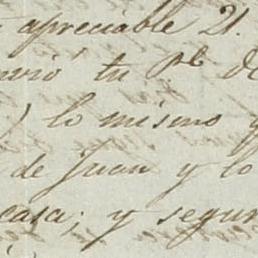 apreciable 21.
tu pl. de
lo mismo y
de Juan y lo
casa; y segun